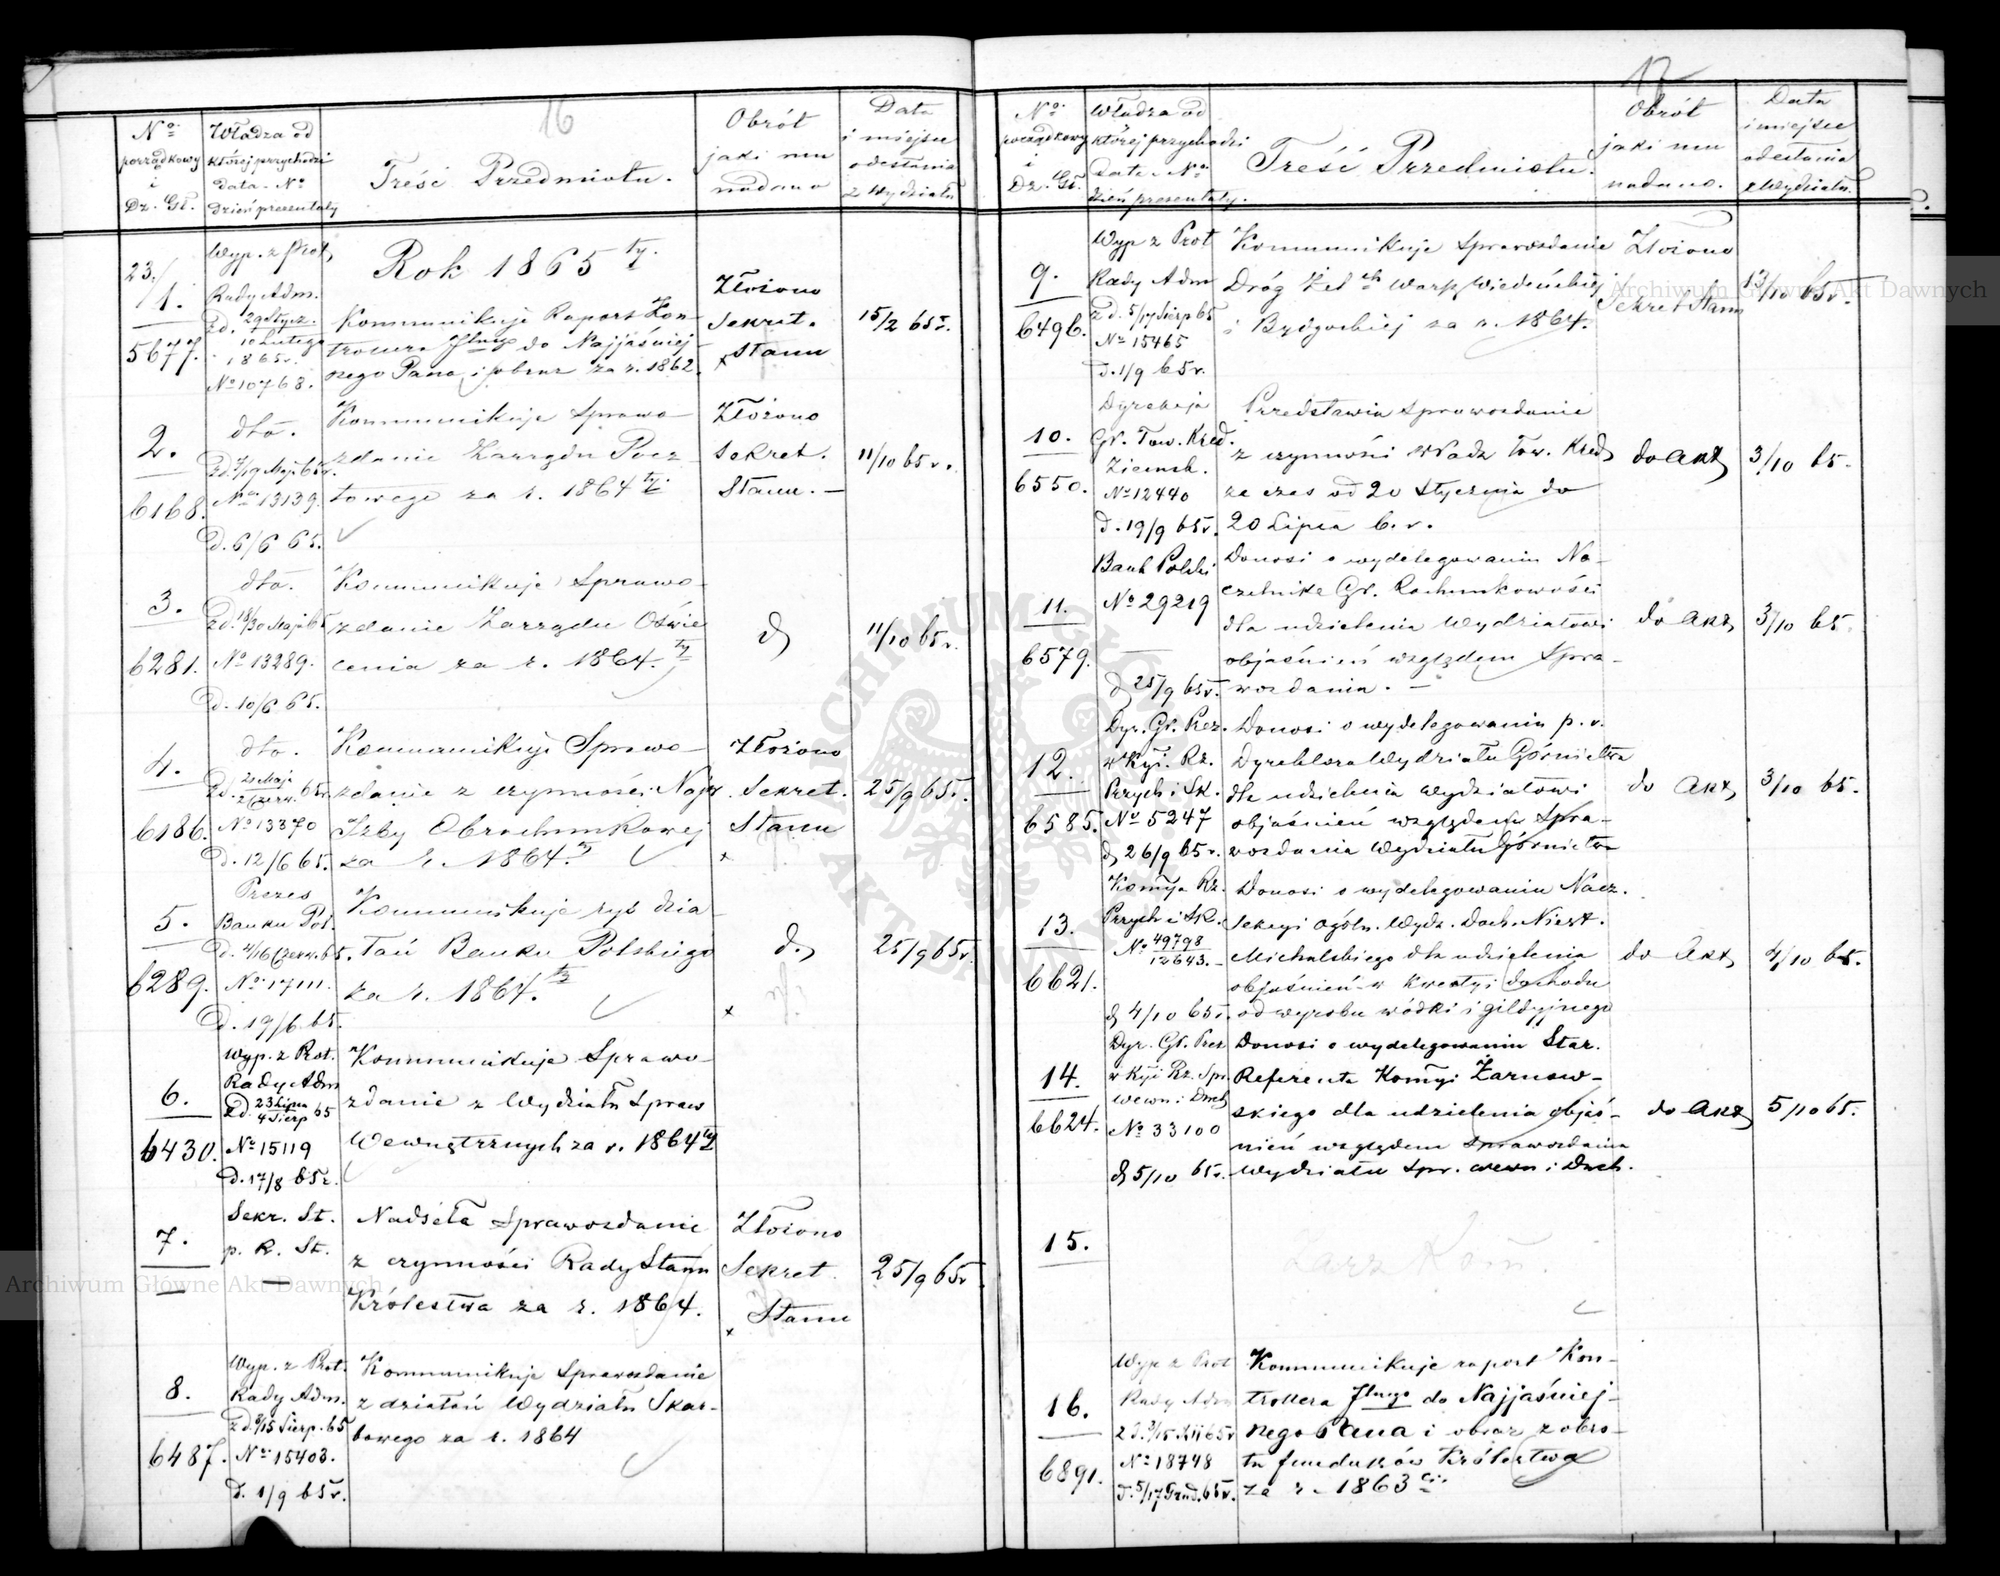 16
No porządkowy i Dz. Gł.
Władza od której przychodzi data. No dzień prezentaty
Treść Przedmiotu.
Obrót jaki mu nadano
Data i miejsce odesłania z Wydziału
Rok 1865 ty.
23./1.
5677.
Wyp. z Prot.
Rady Adm.
zd. 29 Stycz.
10 Lutego
1865 r.
No 10768.
Kommunikuje Raport Kon-
trollera Jlnego do Najjaśniej-
szego Pana i obraz za r. 1862.
Złożono
Sekret.
Stanu
15/2 65 r.
2.
6168.
dto.
zd. 7/19 Maja 65 r.
No 13139.
d. 6/6 65.
Kommunikuje Sprawo-
zdanie Zarządu Pocz-
towego za r. 1864 ty
Złożono
Sekret.
Stanu. —
11/10 65 r.
3.
6281.
dto.
zd. 18/30 Maja 65
No 13289.
d. 10/6 65.
Kommunikuje Sprawo-
zdanie Zarządu Oświe
cenia za r. 1864. ty
d
11/10 65 r.
4.
6186.
dto.
zd. 21 Maja
2 Czerw. 65 r.
No 13370
d. 12/6 65.
Kommunikuje Sprawo-
zdanie z czynności Najw.
Izby Obrachunkowej
za r. 1864. ty
Złożono
Sekret.
Stanu
25/9 65 r.
5.
6289.
Prezes
Banku Pol.
d. 4/16 Czerw. 65.
No 17111.
d. 19/6 65.
Kommunikuje rys dzia-
łań Banku Polskiego
za r. 1864. ty
d.
25/9 65 r.
6.
6430.
Wyp. z Prot.
Rady Adm
zd. 23 Lipca
4 Sierp 65
No 15119
d. 17/8 65 r.
Kommunikuje Sprawo-
zdanie z Wydziału Spraw
Wewnętrznych za r. 1864 ty
7.
Sekr. St.
p. R. St.
Nadseła Sprawozdanie
z czynności Rady Stanu
Królestwa za r. 1864.
Złożono
Sekret.
Stanu
25/9 65 r
8.
6487.
Wyp. z Prot.
Rady Adm.
zd. 3/15 Sierp. 65
No 15403.
d. 1/9 65 r.
Kommunikuje Sprawozdanie
z działań Wydziału Skar-
bowego za r. 1864
17
No porządkowy i Dz. Gł.
Władza od której przychodzi Data. No dzień prezentaty.
Treść Przedmiotu.
Obrót jaki mu nadano.
Data i miejsce odesłania z Wydziału.
9.
6496.
Wyp z Prot
Rady Adm
zd. 5/17 Sierp 65
No 15465
d. 1/9 65 r.
Kommunikuje Sprawozdanie
Dróg Żel ch Warsz. Wiedeńskiej
i Bydgoskiej za r. 1864.
Złożono
Sekret Stanu
13/10 65 r.
10.
6550.
Dyrekcja
Gł. Tow. Kred.
Ziemsk.
No 12440
d. 19/9 65 r.
Przedstawia Sprawozdanie
z czynności Władz Tow. Kred
za czas od 20 Stycznia do
20 Lipca b. r.
do akt
3/10 65.
11.
6579.
Bank Polski
No 29219
d 25/9 65 r.
Donosi o wydelegowaniu Na-
czelnika Gł. Rachunkowości
dla udzielenia Wydziałowi
objaśnień względem Spra-
wozdania. —
do akt
3/10 65.
12.
6585.
Dyr. Gł. Prez.
w Kyi. Rz.
Przych i Sk.
No 5247
d 26/9 65 r.
Donosi o wydelegowaniu p. o.
Dyrektora Wydziału Górnictwa
dla udzielenia Wydziałowi
objaśnień względem Spra-
wozdania Wydziału Górnictwa
do akt
3/10 65.
13.
6621.
Komya Rz.
Przych i Sk.
No 49798
12643. —
d 4/10 65 r.
Donosi o wydelegowaniu Nacz.
Sekcyi ogóln. Wydz. Doch. Niest.
Michalskiego dla udzielenia
objaśnień w kwestyi dochodu
od wyrobu wódki i gildyjnego
do Akt
4/10 65.
14.
6624.
Dyr. Gł. Prez
w Kyi Rz. Spr.
wewn. i Duch
No 33100
d 5/10 65 r.
Donosi o wydelegowaniu Star.
Referenta Komyi Żarnow-
skiego dla udzielenia objaś-
nień względem Sprawozdania
Wydziału Spr. wewn i Duch.
do akt
5/10 65.
15.
16.
6891.
Wyp z Prot
Rady Adm
z d. 3/15 XII 65 r
No 18748
d. 5/17 Grud. 65 r.
Kommunikuje raport Kon-
trollera Jlnego do Najjaśniej-
szego Pana i obraz z obro-
tu funduszów Królestwa
za r. 1863 ci.
Archiwum Główne Akt Dawnych
Archiwum Główne Akt Dawnych
ARCHIWUM GŁÓWNE AKT DAWNYCH